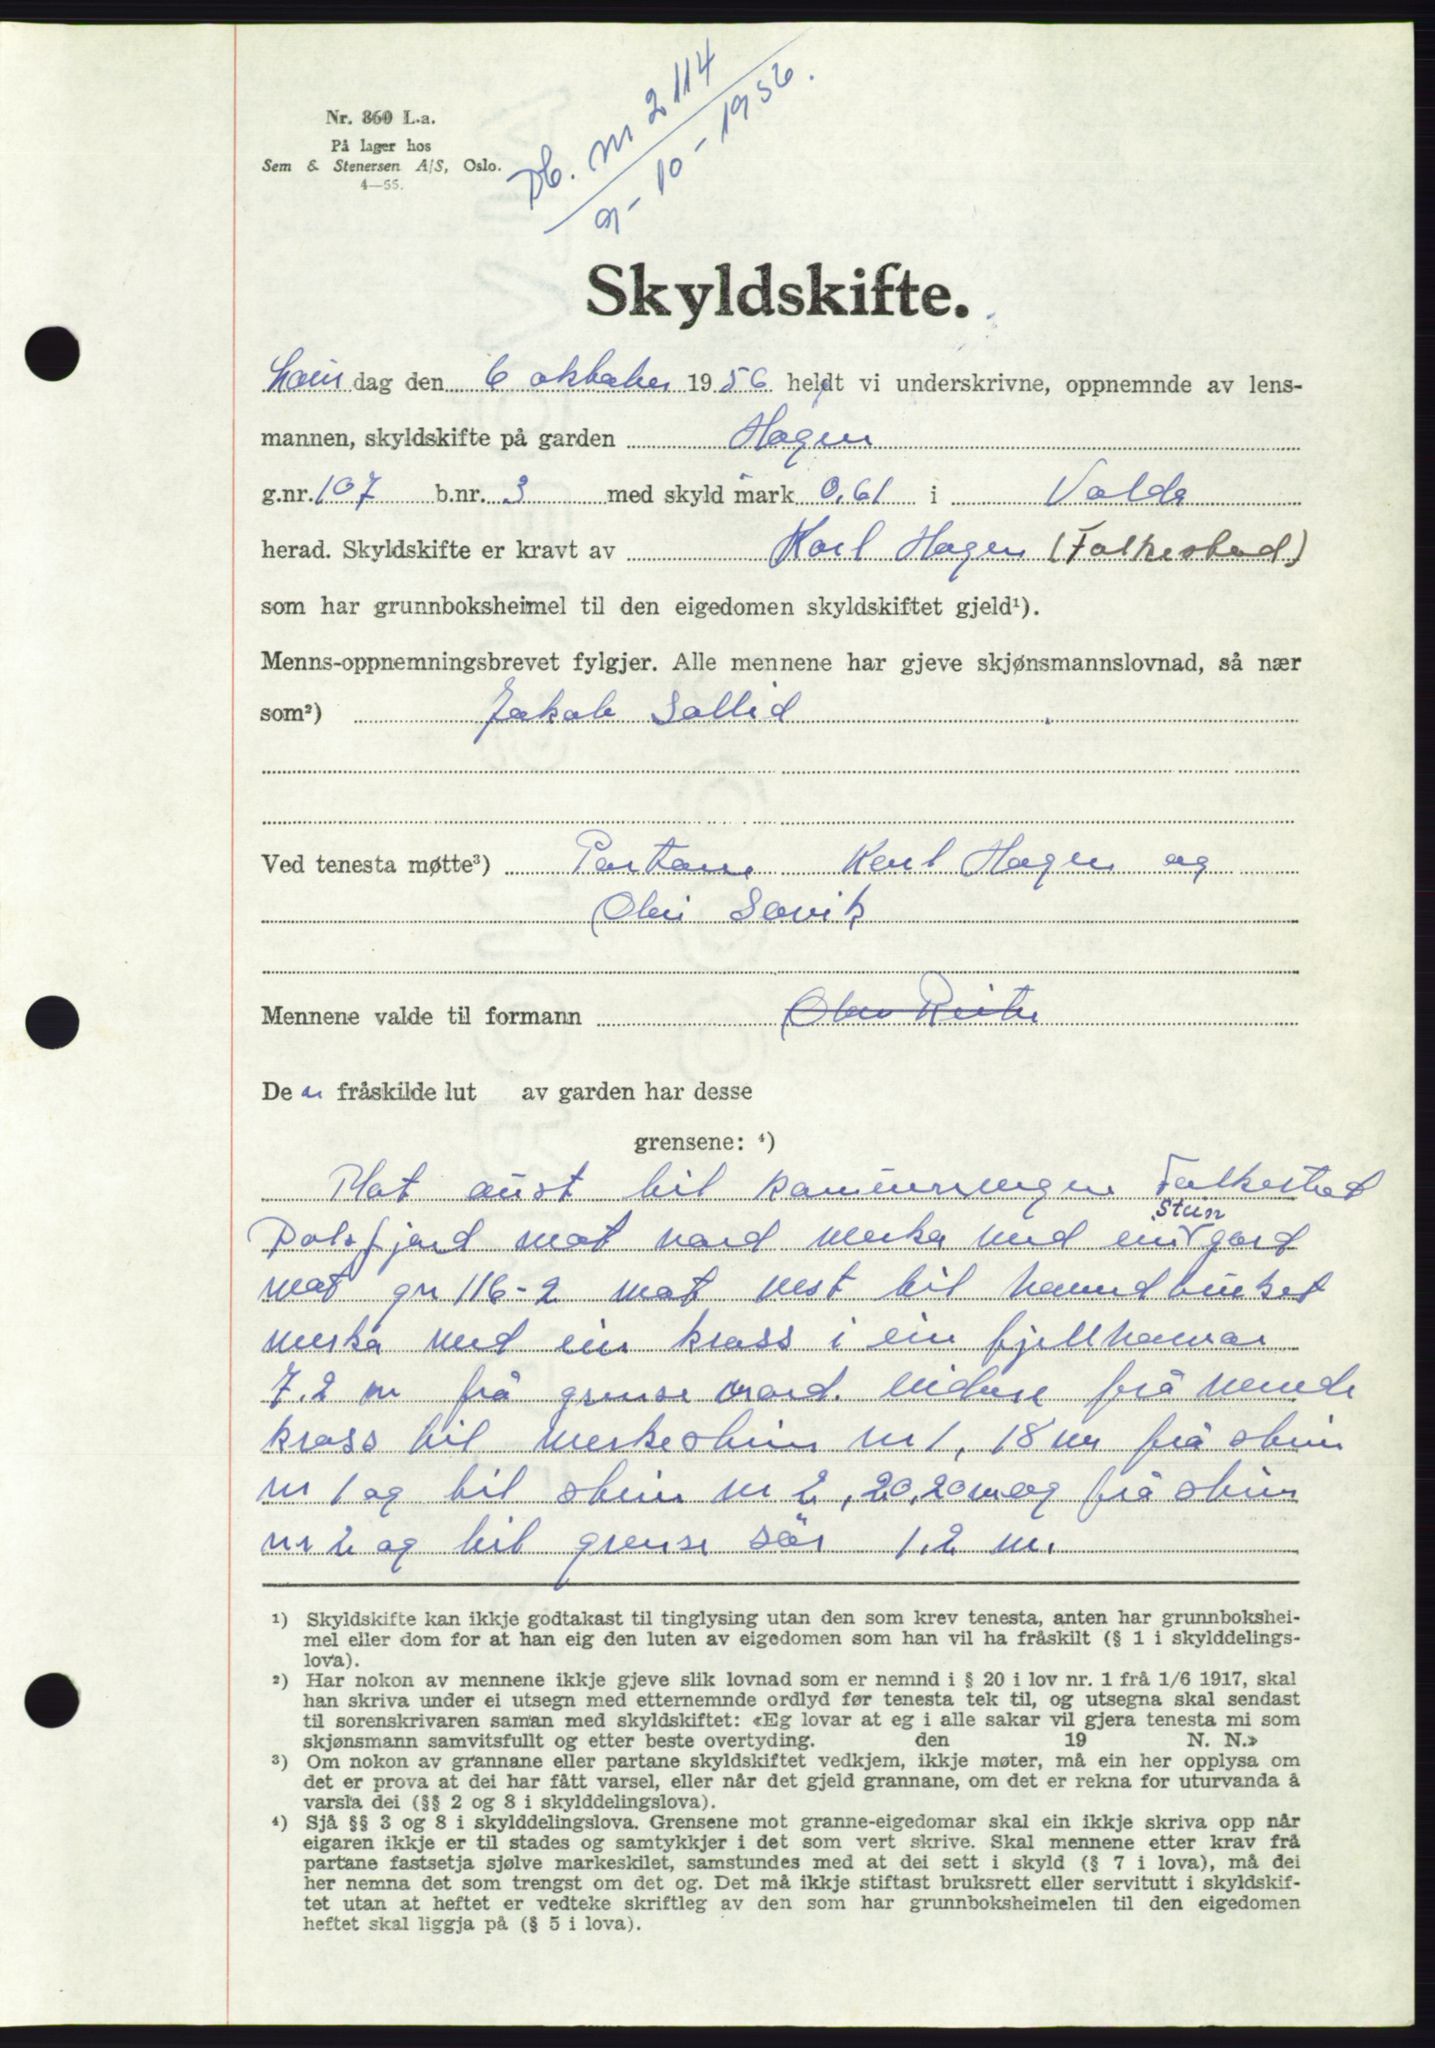 Db. nr 2114
9-10-1956.
Nr. 860 L.a.
På lager hos
Sem & Stenersen A/S, Oslo.
4—55.
Skyldskifte.
Laur dag den 6 oktober 1956 heldt vi underskrivne, oppnemnde av lens-
mannen, skyldskifte på garden Hagen
g.nr. 107 b.nr. 3 med skyld mark 0,61 i Volda
herad. Skyldskifte er kravt av Karl Hagen (Folkestad)
som har grunnboksheimel til den eigedomen skyldskiftet gjeld¹).
Menns-oppnemningsbrevet fylgjer. Alle mennene har gjeve skjønsmannslovnad, så nær
som²) Jakob Sollid
Ved tenesta møtte³) Partane Karl Hagen og
Olai Søvik
Mennene valde til formann
De n fråskilde lut av garden har desse
grensene: ⁴)
Mot aust til Folkestad
Stein
Dalsfjord mot nord merka med ein gard
mot gn 116-2 mot vest til
merka med ein kross i ein fjellhamar
7.2 m frå grense nord. vidare frå nemde
kross til merkestein nr 1, 18 m frå stein
nr 1 og til stein nr 2, 20,20 m og frå stein
nr 2 og til grense sør 1.2 m.
¹) Skyldskifte kan ikkje godtakast til tinglysing utan den som krev tenesta, anten har grunnbokshei-
mel eller dom for at han eig den luten av eigedomen som han vil ha fråskilt (§ 1 i skylddelings-
lova).
²) Har nokon av mennene ikkje gjeve slik lovnad som er nemnd i § 20 i lov nr. 1 frå 1/6 1917, skal
han skriva under ei utsegn med etternemnde ordlyd før tenesta tek til, og utsegna skal sendast
til sorenskrivaren saman med skyldskiftet: «Eg lovar at eg i alle sakar vil gjera tenesta mi som
skjønsmann samvitsfullt og etter beste overtyding. den 19 N. N.»
³) Om nokon av grannane eller partane skyldskiftet vedkjem, ikkje møter, må ein her opplysa om
det er prova at dei har fått varsel, eller når det gjeld grannane, om det er rekna for uturvanda å
varsla dei (§§ 2 og 8 i skylddelingslova).
⁴) Sjå §§ 3 og 8 i skylddelingslova. Grensene mot granne-eigedomar skal ein ikkje skriva opp når
eigaren ikkje er til stades og samtykkjer i det som vert skrive. Skal mennene etter krav frå
partane fastsetja sjølve markeskilet, samstundes med at dei sett i skyld (§ 7 i lova), må dei
her nemna det som trengst om det og. Det må ikkje stiftast bruksrett eller servitutt i skyldskif-
tet utan at heftet er vedteke skriftleg av den som har grunnboksheimelen til den eigedomen
heftet skal liggja på (§ 5 i lova).